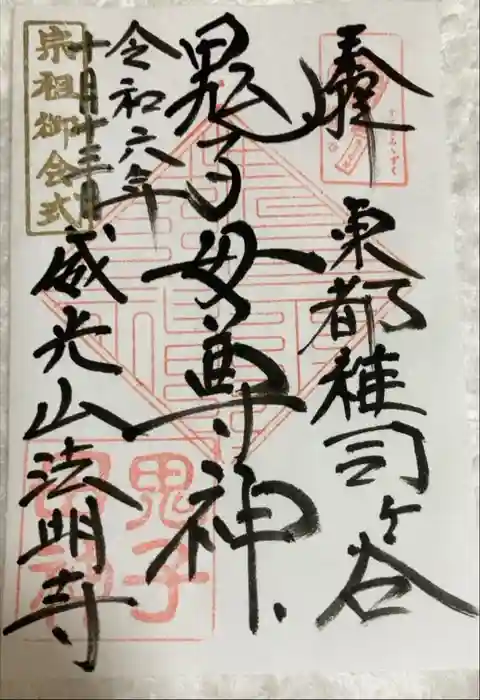 奉拝
東都雑司ヶ谷
鬼子母尊神
令和六年
十月十三日
宗祖御会式
威光山法明寺
鬼子
母神